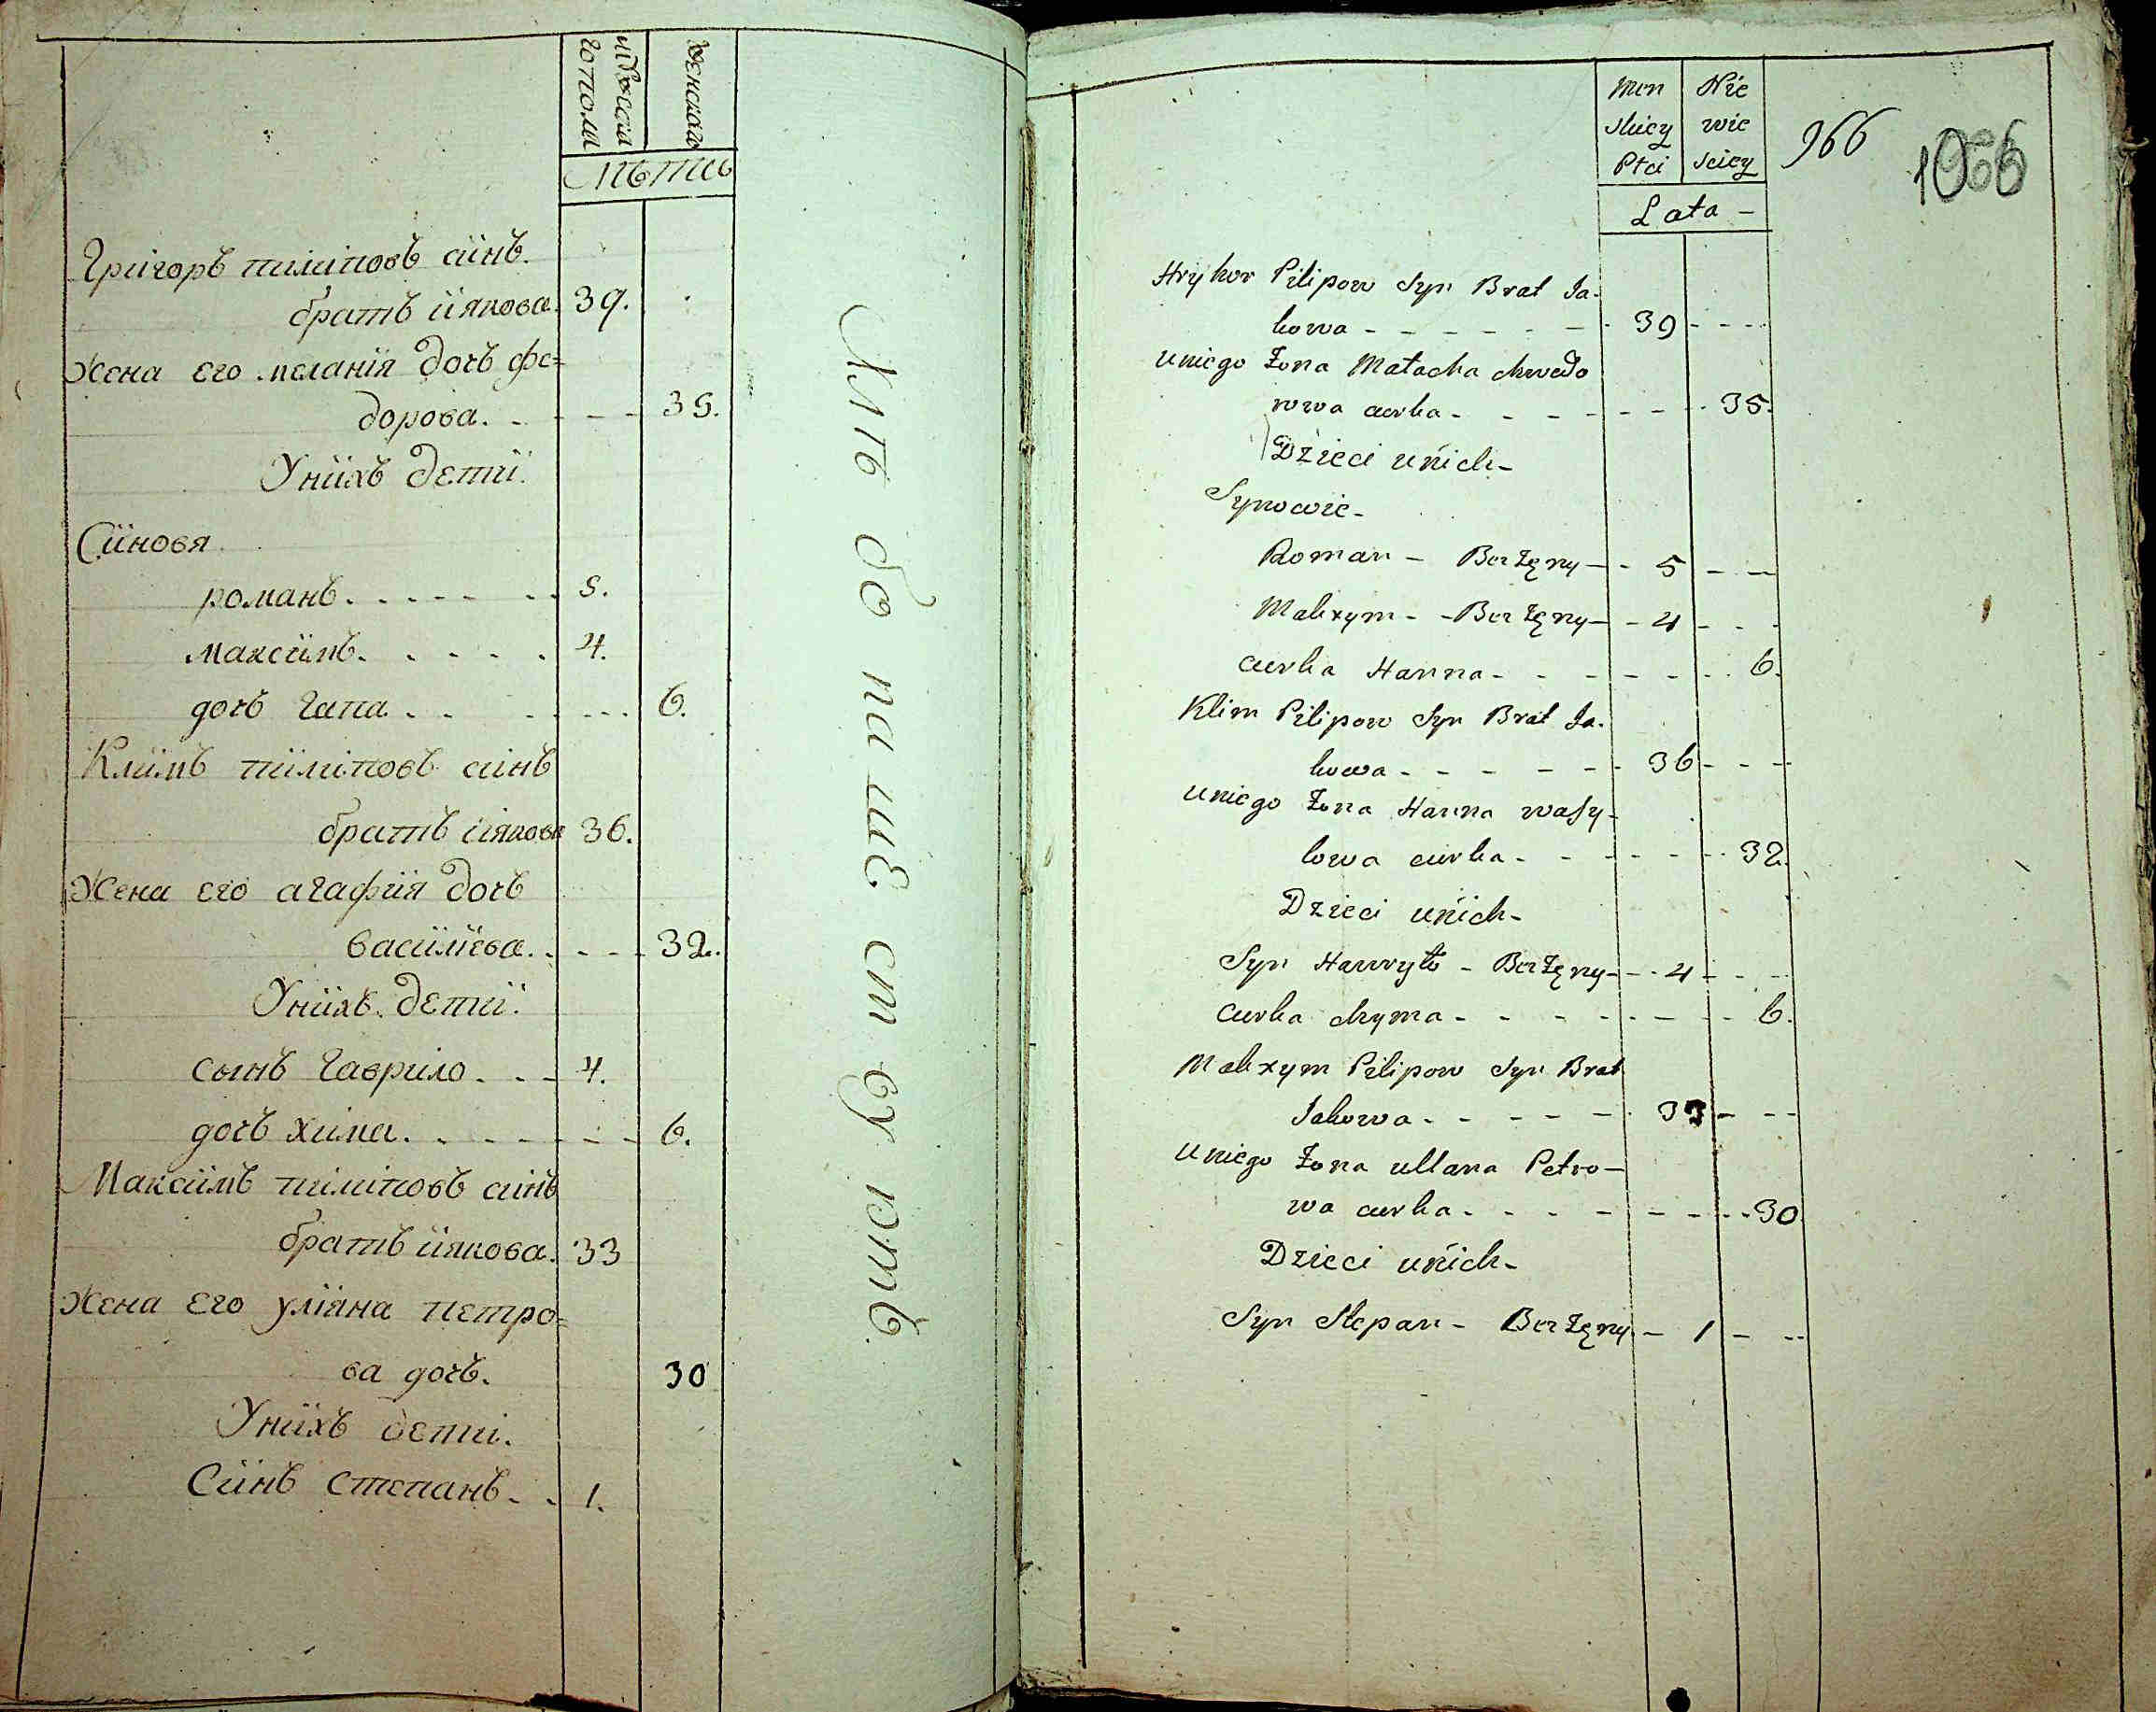 женскаго
лѣтъ
Григоръ пилиповъ синъ.
братъ ияковa. 39.
Жена его меланія дочъ фе=
дорова. - - - - 35.
Унихъ дети.
Синовя
романъ. - - - - - 5.
максимъ. - - - - . 4.
дочъ гапа . - - - - - 6.
Климъ пилиповъ синъ
братъ иякова 36.
Жена его агафия дочъ
василиева. - - - - 32.
Унихъ. дети.
сынъ гаврило. - - - 4.
дочъ хима. - - - - - - 6.
Максимъ пилиповъ синъ
братъ иякова. 33
Жена его уліяна петро=
ва дочъ. 30
Унихъ дети.
Синъ степанъ - - 1.
Men Nie
skiey wie
Płci sciey
966
1066
Lata -
Hryhor Pilipow Syn Brat Ja-
kowa - - - - - - - 39 - - - -
uniego Żona Małacha chwedo
rowa curka - - - - - - - - 35.
Dzieci unich -
Synowie -
Roman - Bezżęny - - 5 - -
Makxym - - Bezżęny - - 4 - - -
curka Hanna - - - - - - - 6.
Klim Pilipow Syn Brat Ja-
kowa - - - - - - - 36 - - -
uniego Żona Hanna wasy-
lowa curka - - - - - - - 32.
Dzieci unich -
Syn Hawryło - Bezżęny - - 4 - - -
curka chyma - - - - - - - - 6.
Makxym Pilipow Syn Brat
Jakowa - - - - - - 33 - - -
uniego Żona ullana Petro -
wa curka - - - - - - - - - 30
Dzieci unich -
Syn Stepan - Bezżęny - 1 - - -